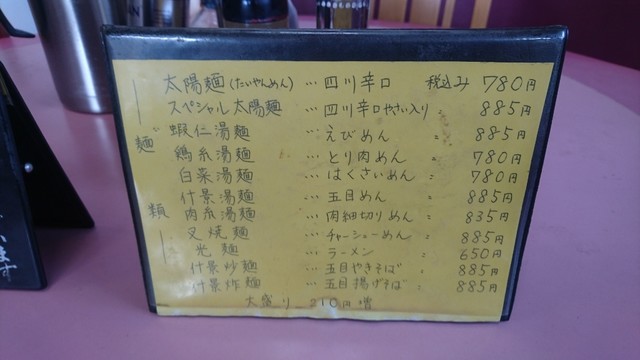 太陽麺(たいやんめん) … 四川辛口 税込み 780円
スペシャル太陽麺 … 四川辛口やさい入り 〃 885円
蝦仁湯麺 … えびめん 〃 885円
鶏糸湯麺 … とり肉めん 〃 780円
白菜湯麺 … はくさいめん 〃 780円
什景湯麺 … 五目めん 〃 885円
肉糸湯麺 … 肉細切りめん 〃 835円
叉焼麺 … チャーシューめん 〃 885円
光麺 … ラーメン 〃 650円
什景炒麺 … 五目やきそば 〃 885円
什景炸麺 … 五目揚げそば 〃 885円
大盛り 210円増
麺類
います